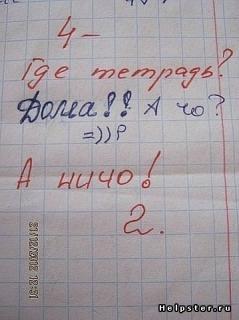 4-
Где тетрадь?
Дома!! А чо?
=))Р
А ничо!
2.
21/12/2012 12:51
Helpster.ru